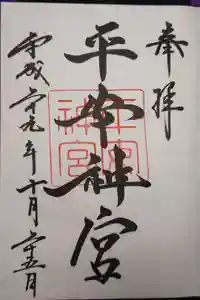 奉拝
平安神宮
平安
神宮
平成二十九年十月二十五日